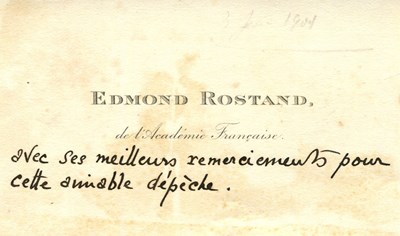 EDMOND ROSTAND,
de l'Académie Française.
avec ses meilleurs remerciements pour
cette aimable dépèche.